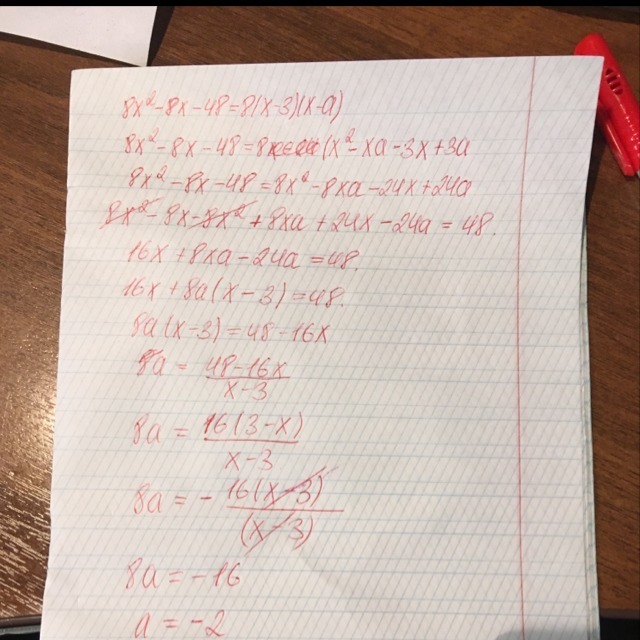 8x²-8x-48=8(x-3)(x-a)
8x²-8x-48=8(x²-xa-3x+3a
8x²-8x-48=8x²-8xa-24x+24a
8x²-8x-8x²+8xa+24x-24a=48.
16x+8xa-24a=48.
16x+8a(x-3)=48.
8a(x-3)=48-16x
8a=48-16x
x-3
8a=16(3-x)
x-3
8a=-16(x-3)
(x-3)
8a=-16
a=-2